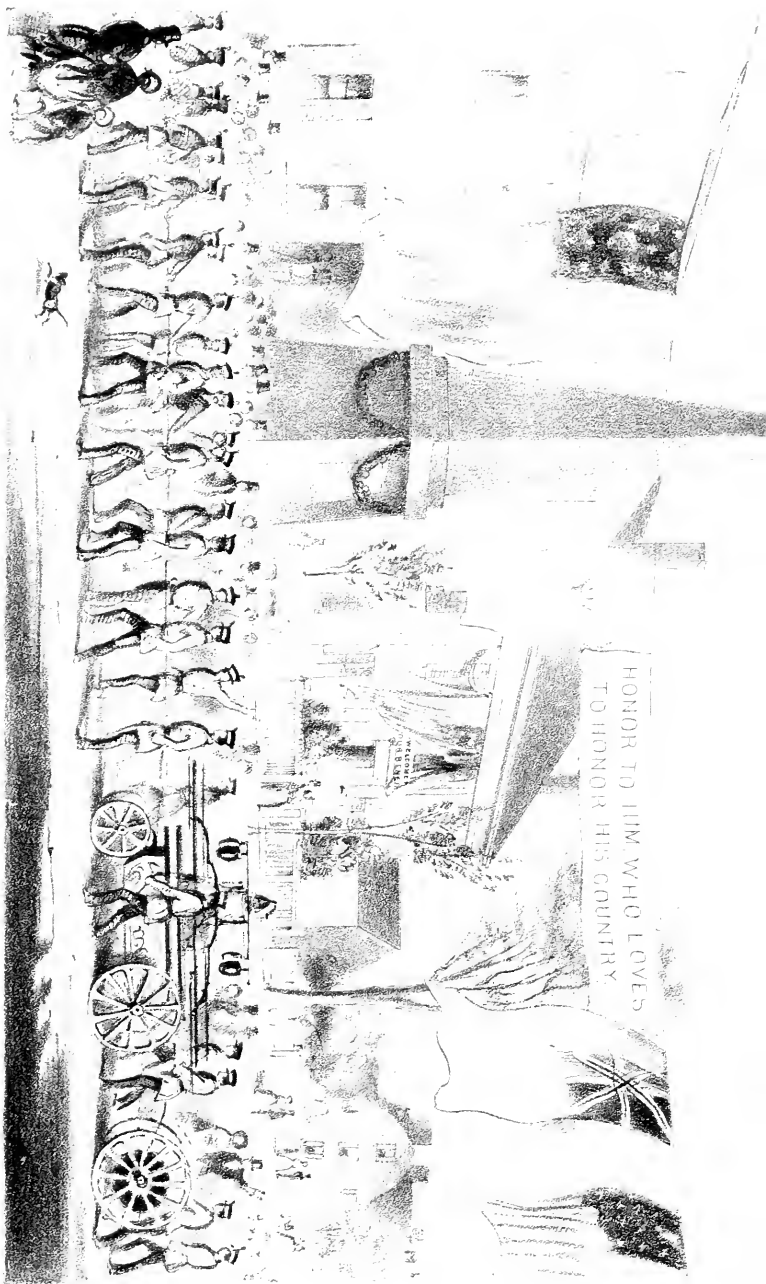 HONOR TO HIM WHO LOVES
TO HONOR HIS COUNTRY
WELCOME